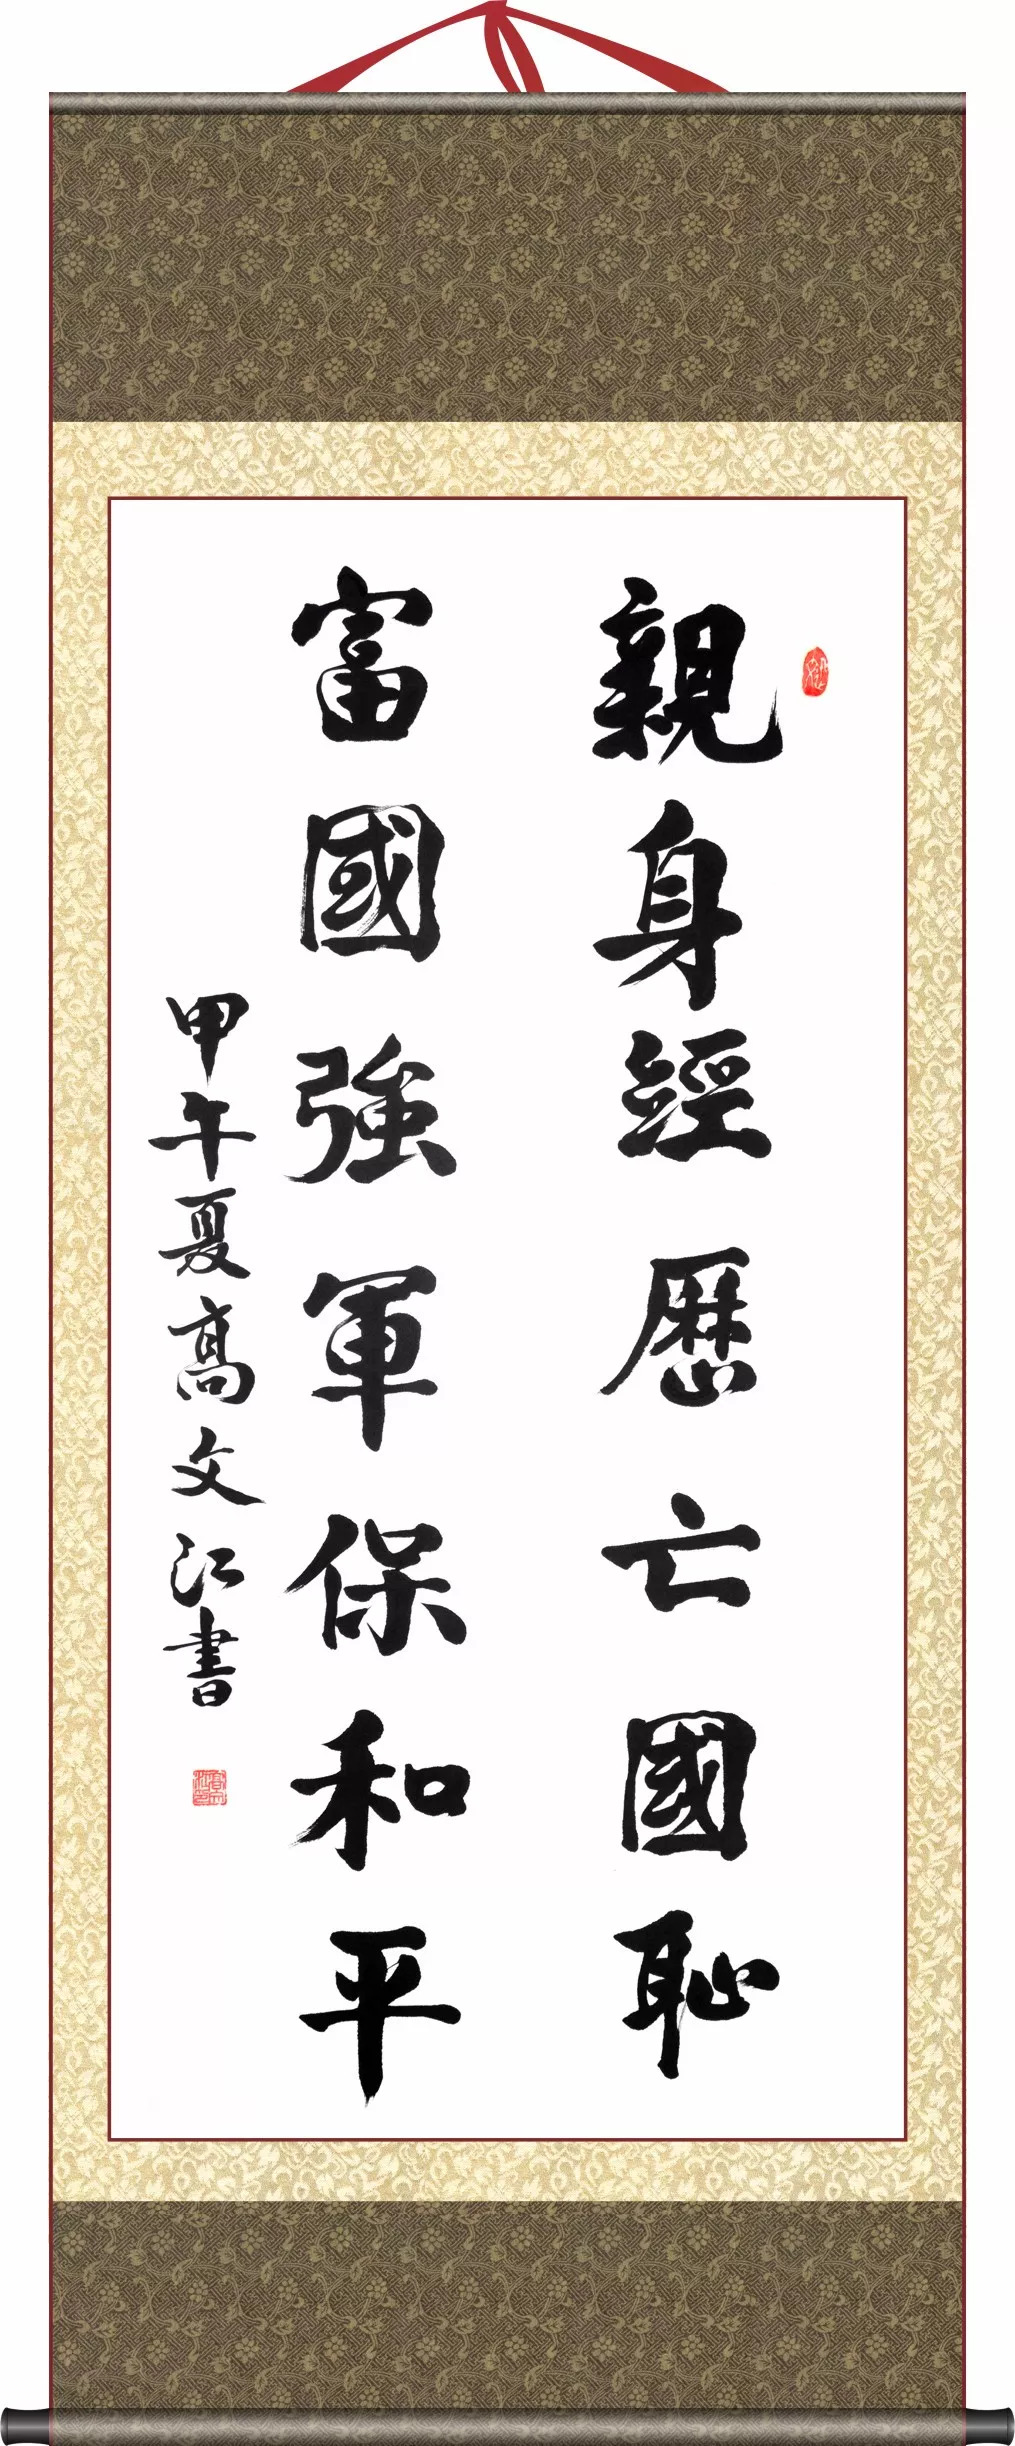 親身經歷亡國恥
富國強軍保和平
甲午夏高文江書